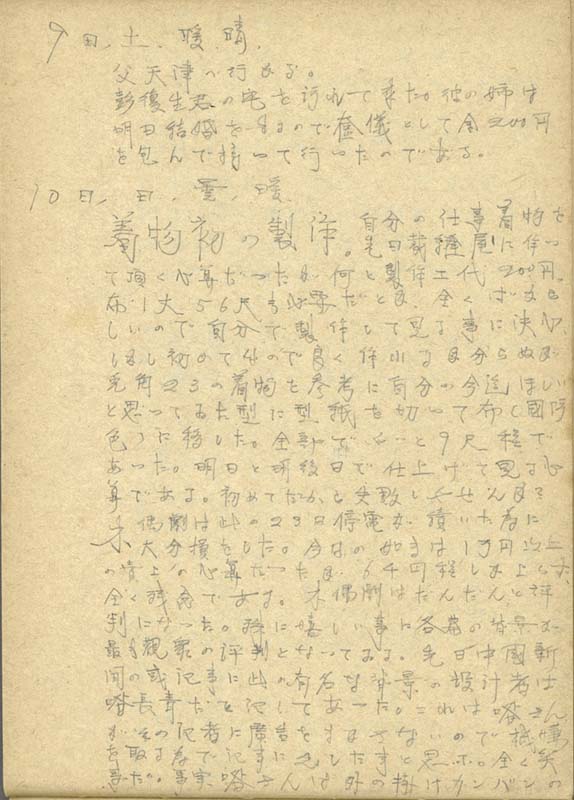 9日、土、暖、晴、
父天津へ行かる。
彭復生君の宅を訪れて来た。彼の姉は
明日結婚をするので奠儀として金200円
を包んで持って行ったのである。
10日、日、雪、暖、
着物初の製作。自分の仕事着物を
先日裁縫屋に作っ
て頂く心算だったが何と製作工代200円。
布1丈56尺も必要だと云ふ。全くばかば
しいので自分で製作して見る事に決心。
しかし初めてなので良く作れるか分らぬが
兎角23の着物を参考に自分の今迄ほしい
と思ってゐた型に型紙を切って布(国防
色)に移した。全部で 9尺程で
あった。明日と明後日で仕上げて見る心
算である。初めてだから失敗しませんかな?
木偶劇は此の23日停電が続いた為に
大分損をした。今日の如きは1万円以上
の売上の心算だったが、4千円程しか上らず
全く残念である。木偶劇はだんだんと評
判になった。殊に嬉しい事に各幕の背景が
最も観客の評判となってゐる。先日中國新
聞の或記事に此の有名な背景の設計者は
咯長青だと記してあった。これは咯さん
がその記者に廣告をさせないので機嫌
を取る為で記事にしたすと思ふ。全く笑
事だ。事実咯さんは外の掛けカンバンの